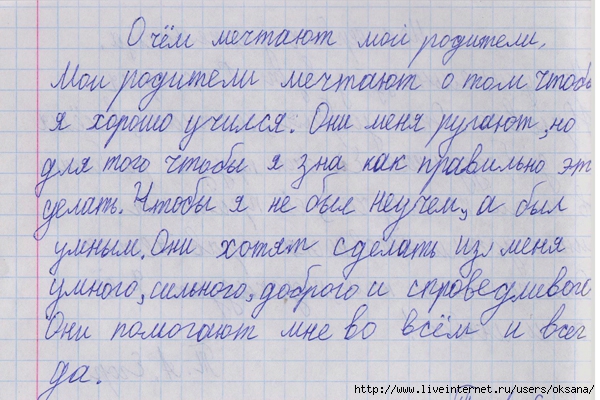 О чём мечтают мои родители.
Мои родители мечтают о том чтобы
я хорошо учился. Они меня ругают, но
для того чтобы я зна как правильно эт
делать. Чтобы я не был неучем, а был
умным. Они хотят сделать из меня
умного, сильного, доброго и справедливого
Они помогают мне во всём и всег
да.
http://www.liveinternet.ru/users/oksana/